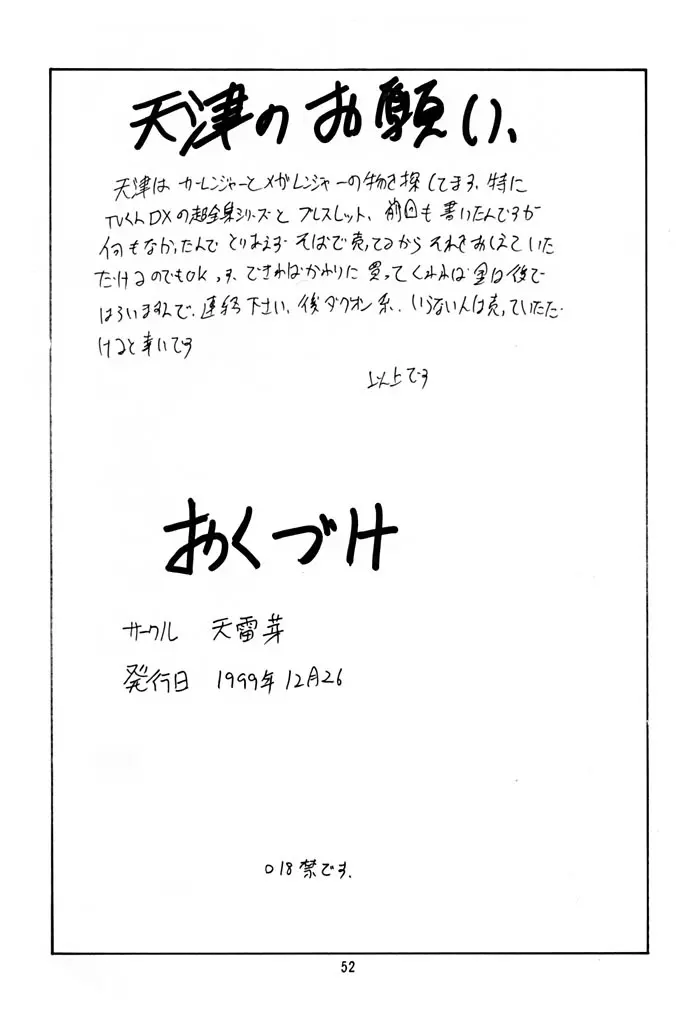 天津のお願い、
天津は カーレンジャーとメガレンジャーの物を探してます、特に
TVくんDXの超全集シリーズと ブレスレット、前回も書いたんですが
何もなかったんで とりあえず そばで売ってるから それをおしえていた
だけるのでもOKっす、できればかわりに買ってくれれば金は後で
はらいますんで、連絡下さい、後ダグオン系、いらない人は売っていただ
けると幸いです
以上です
おくづけ
サークル 天雷芽
発行日 1999年12月26
○18禁です.
52